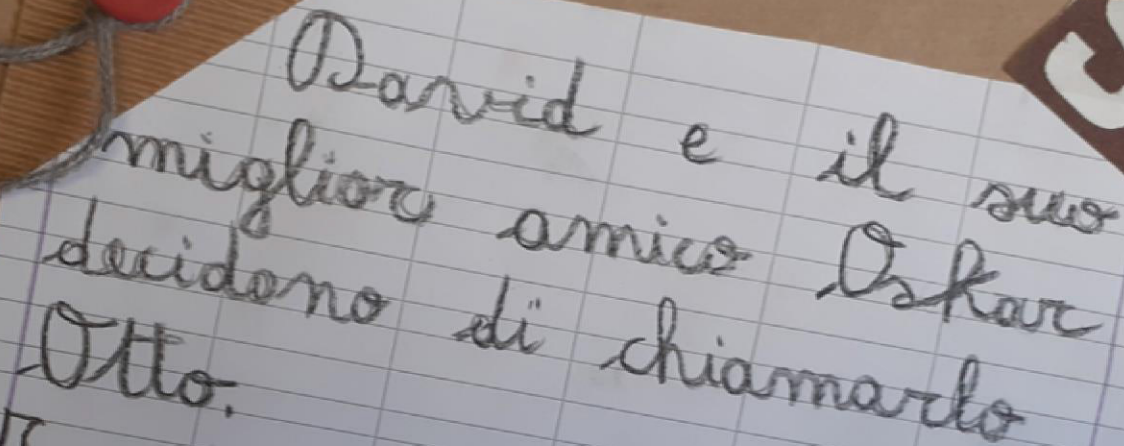 David e il suo
miglior amico Oskar
decidono di chiamarlo
Otto.